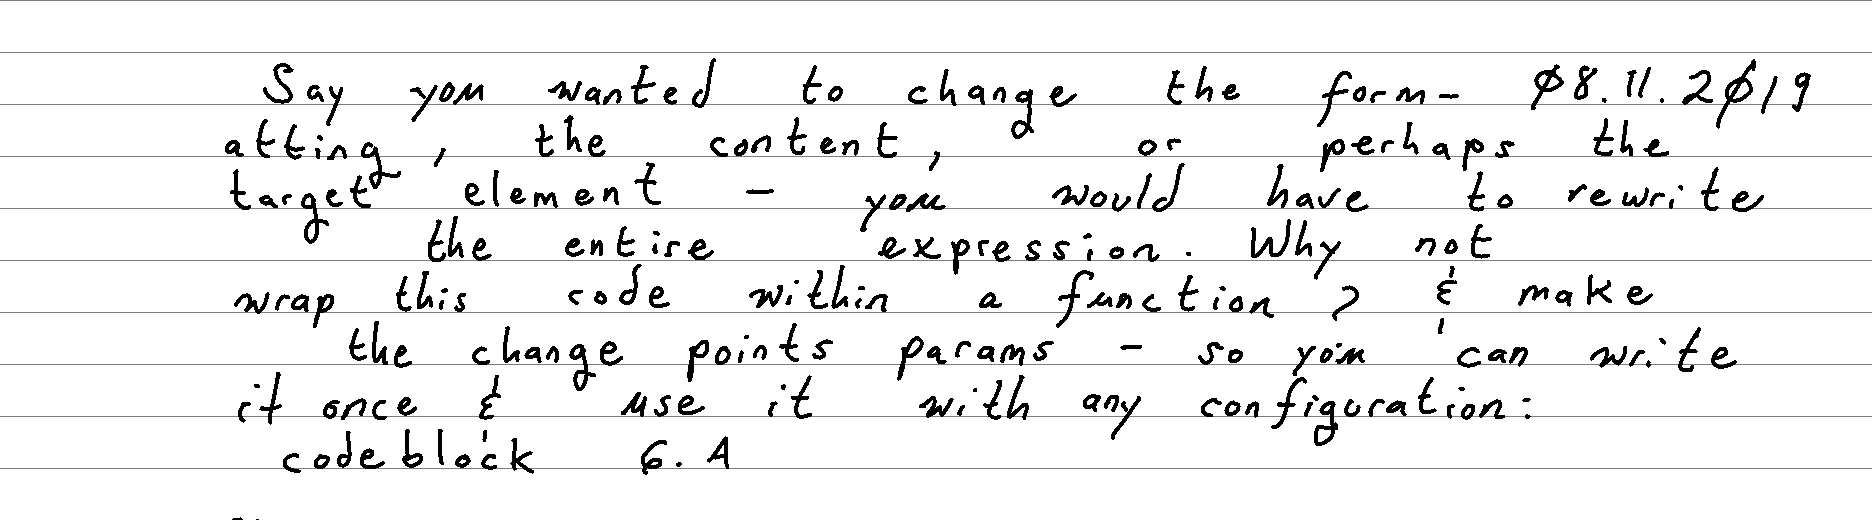 Say you wanted to change the form- 08.11.2019
atting, the content, or perhaps the
target element - you would have to rewrite
the entire expression. Why not
wrap this code within a function? & make
the change points params - so you can write
it once & use it with any configuration:
codeblock 6.A